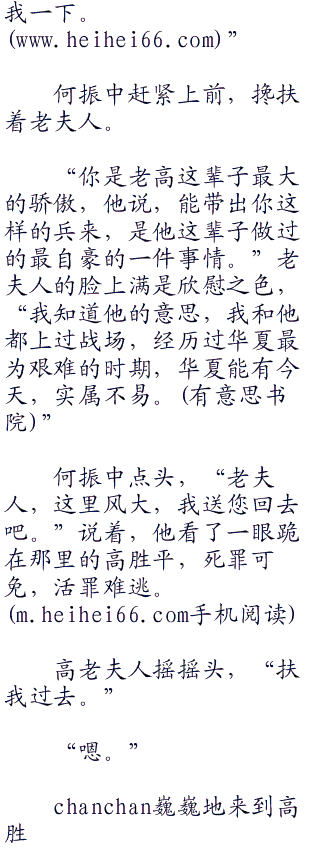 我一下。
(www.heihei66.com)”
何振中赶紧上前，搀扶
着老夫人。
“你是老高这辈子最大
的骄傲，他说，能带出你这
样的兵来，是他这辈子做过
的最自豪的一件事情。”老
夫人的脸上满是欣慰之色，
“我知道他的意思，我和他
都上过战场，经历过华夏最
为艰难的时期，华夏能有今
天，实属不易。(有意思书
院)”
何振中点头，“老夫
人，这里风大，我送您回去
吧。”说着，他看了一眼跪
在那里的高胜平，死罪可
免，活罪难逃。
(m.heihei66.com手机阅读)
高老夫人摇摇头，“扶
我过去。”
“嗯。”
chanchan巍巍地来到高
胜